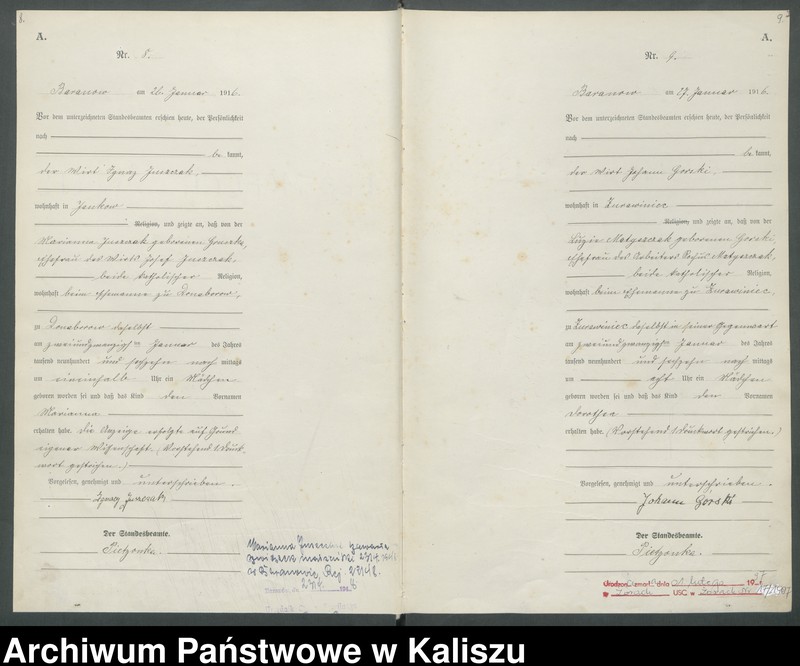 8.
A.
Nr. 8.
Baranow am 26. Januar 1916.
Vor dem unterzeichneten Standesbeamten erschien heute, der Persönlichkeit
nach
be kannt,
der Wirt Ignaz Juszczak
wohnhaft in Jankow
Religion, und zeigte an, daß von der
Marianna Juszczak geborenen
Ehefrau des Wirts Josef Juszczak
beide katholischer Religion,
wohnhaft beim Ehemanne zu Donaborow,
zu Donaborow daselbst
am zweiundzwanzigsten Januar des Jahres
tausend neunhundert und sechzehn nach mittags
um eineinhalb Uhr ein Mädchen
geboren worden sei und daß das Kind den Vornamen
Marianna
erhalten habe. Die Anzeige erfolgte auf Grund
eigener Wissenschaft. (Vorstehend 1 Druck-
wort gestrichen.)
Vorgelesen, genehmigt und unterschrieben.
Ignaz Juszczak
Der Standesbeamte.
Pietzonka.
Marianna zawarła
związek małżeński
w Baranowie, Rej.
9
A.
Nr. 9.
Baranow am 27. Januar 1916.
Vor dem unterzeichneten Standesbeamten erschien heute, der Persönlichkeit
nach
be kannt,
der Wirt Johann Gorski
wohnhaft in Zurawiniec
Religion, und zeigte an, daß von der
Luzie Matyszczak geborenen Gorski,
Ehefrau des Arbeiters Matyszczak,
beide katholischer Religion,
wohnhaft beim Ehemanne zu Zurawiniec,
zu Zurawiniec daselbst in seiner Gegenwart
am zweiundzwanzigsten Januar des Jahres
tausend neunhundert und sechzehn nach mittags
um acht Uhr ein Mädchen
geboren worden sei und daß das Kind den Vornamen
Dorothea
erhalten habe. (Vorstehend 1 Druckwort gestrichen.)
Vorgelesen, genehmigt und unterschrieben.
Johann Górski
Der Standesbeamte.
Pietzonka.
zmarł dnia 21 lutego 19
w USC w
Archiwum Państwowe w Kaliszu